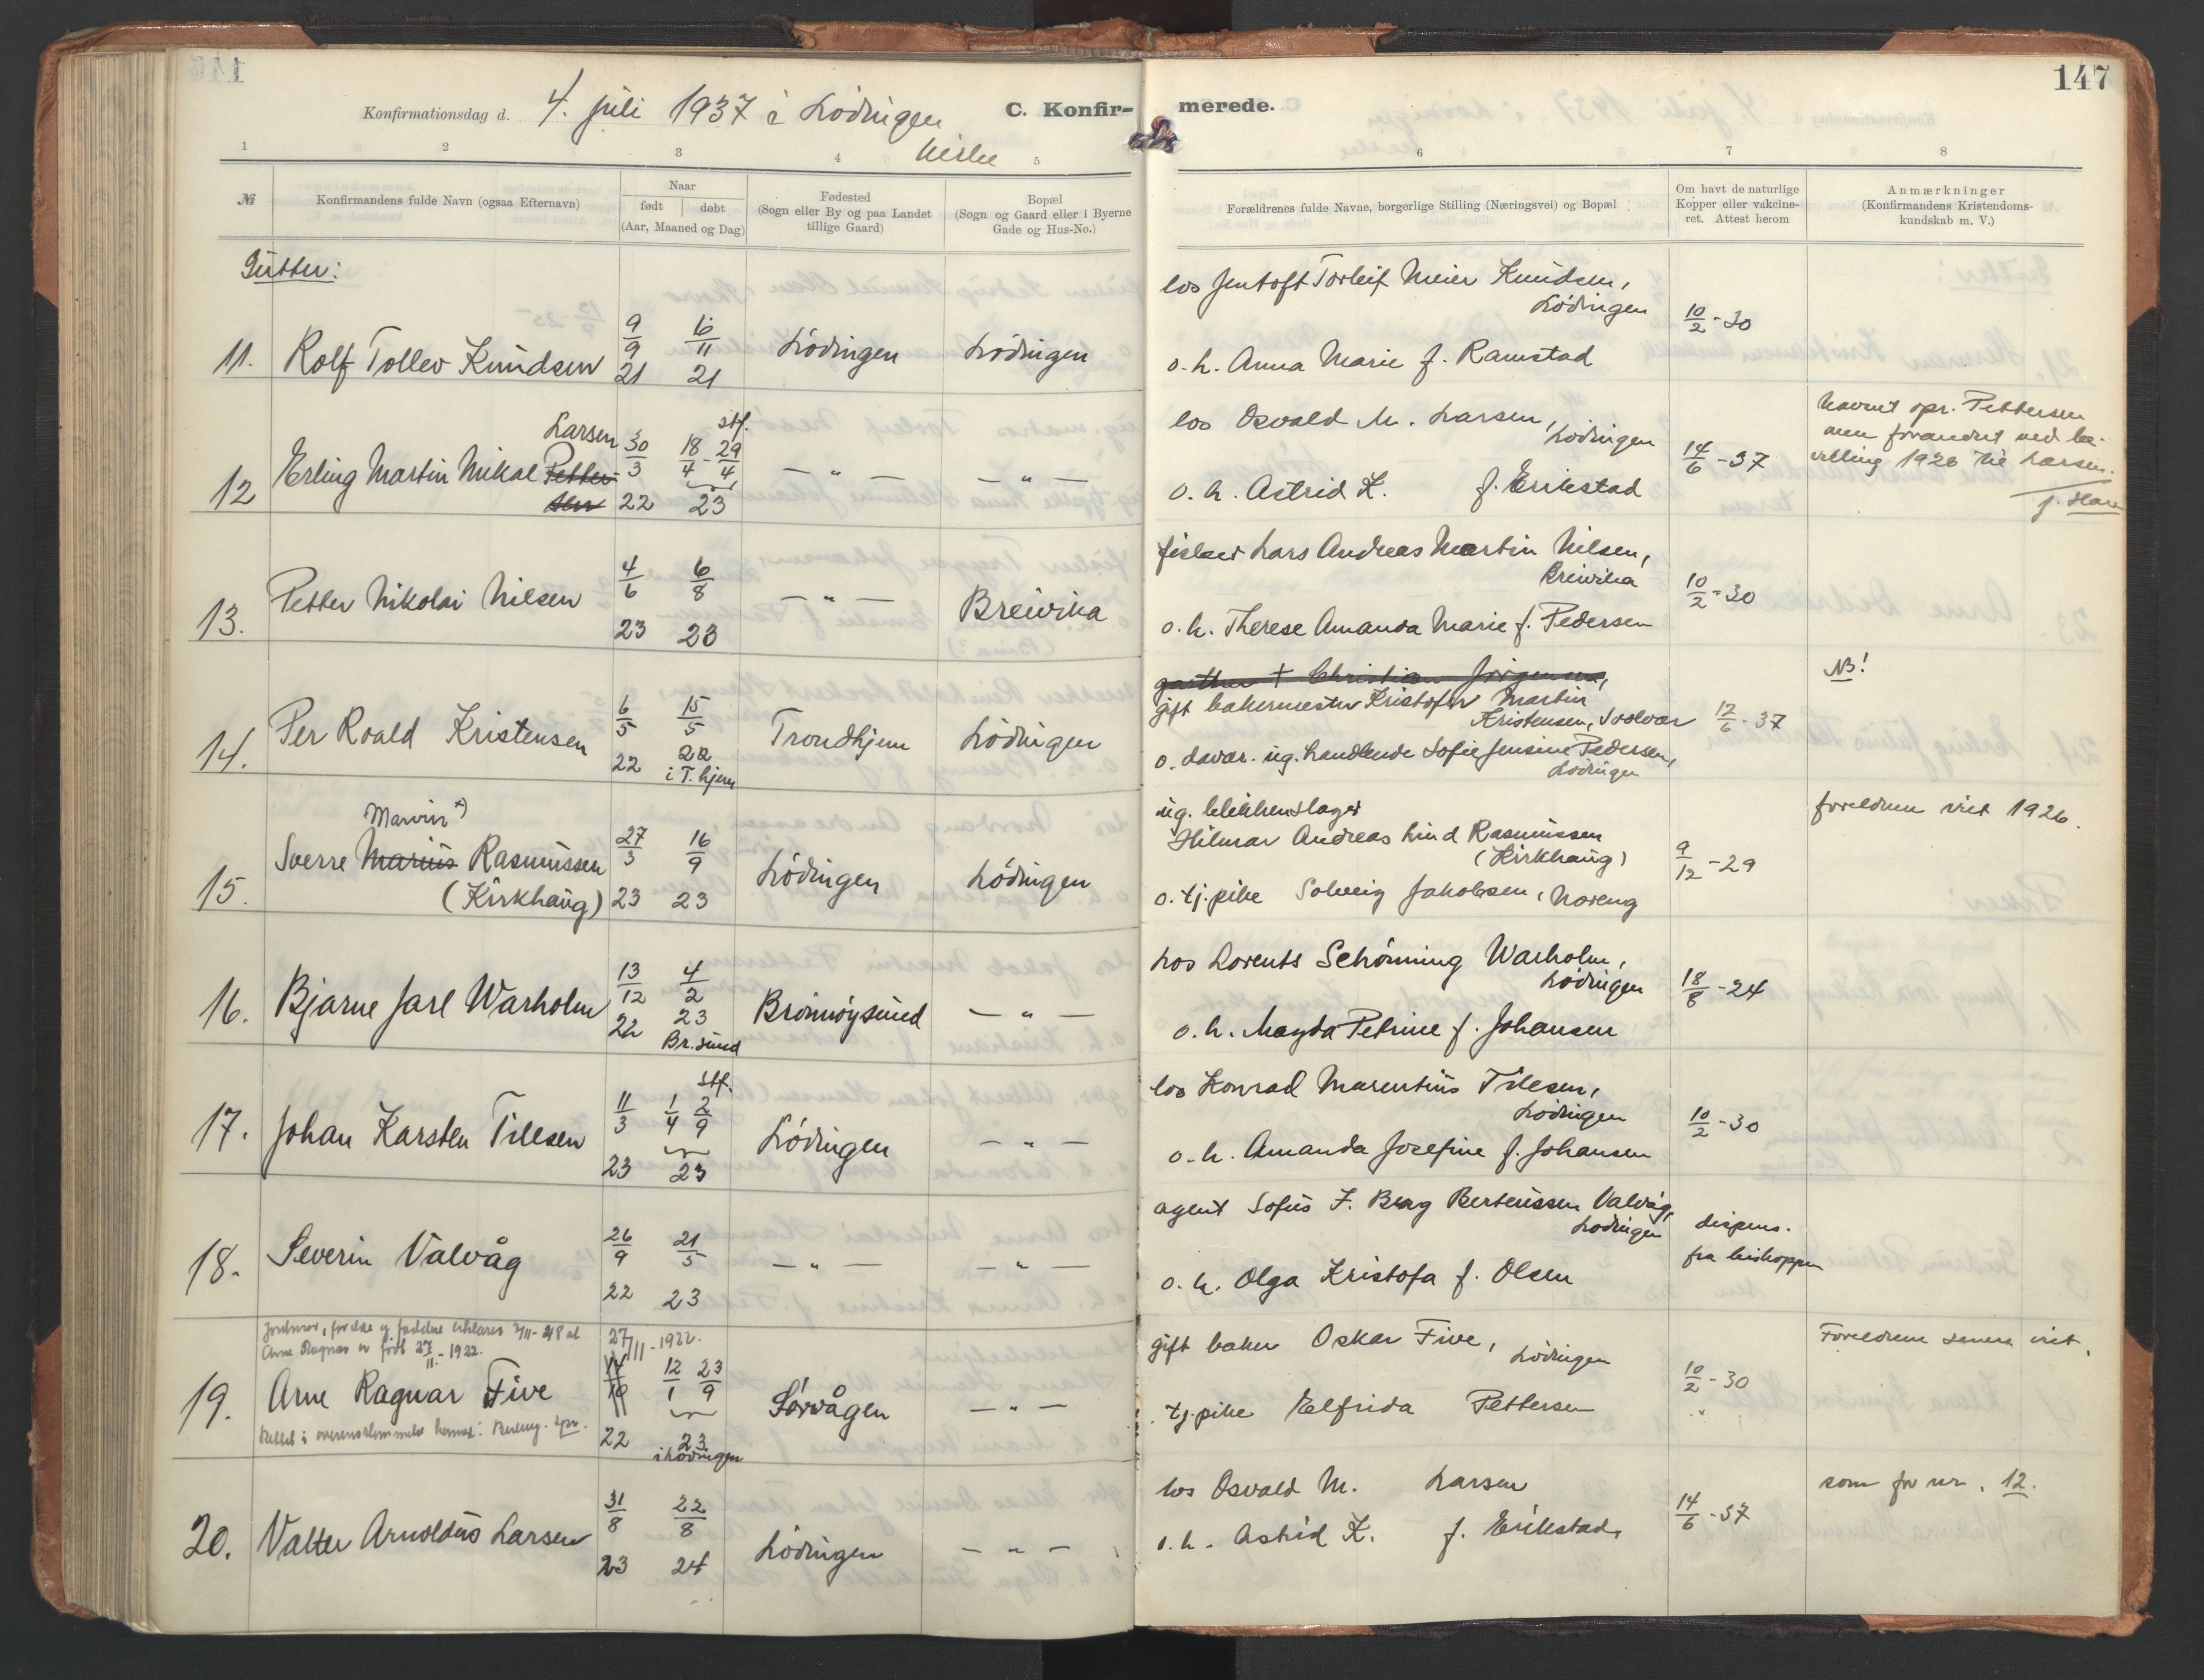 147
Konfirmationsdag d. 4. juli 1937 i Lödingen kirke
C. Konfir- merede.
1 2 3 4 5 6 7 8
№ Konfirmandens fulde Navn (ogsaa Efternavn)
Naar født døbt (Aar, Maaned og Dag)
Fødested (Sogn eller By og paa Landet tillige Gaard)
Bopæl (Sogn og Gaard eller i Byerne Gade og Hus-No.)
Forældrenes fulde Navne, borgerlige Stilling (Næringsvei) og Bopæl
Om havt de naturlige Kopper eller vakcineret. Attest herom
Anmærkninger (Konfirmandens Kristendomskundskab m. V.)
Gutter:
11. Rolf Tollev Knudsen 9/9 21 16/11 21 Lödingen Lödingen
los Jentoft Torleif Meier Knudsen, Lödingen
o. h. Anna Marie f. Ramstad
10/2-30
12 Erling Martin Mikal Pettersen Larsen 30/3 22 18/4 - stf. 29/4 23 — " — — " —
los Osvald M. Larsen, Lödingen
o. h. Astrid K. f. Erikstad
14/6-37
Navnet opr. Pettersen
men forandret ved be-
villing 1926 til Larsen.
13. Petter Nikolai Nilsen 4/6 23 6/8 23 — " — Breivika
fisker Lars Andreas Martin Nilsen, Breivika
o. h. Therese Amanda Marie f. Pedersen
10/2-30
14. Per Roald Kristensen 6/5 22 15/5 22 i T.hjem Trondhjem Lödingen
gartner + Christian Jörgensen,
gift bakermester Kristofer Martin
Kristensen, Svolvær
o. davær. ug. handlende Sofie Jensine Pedersen,
Lödingen
12/6-37
NB!
15. Sverre Marius Marvin x) Rasmussen (Kirkhaug) 27/3 23 16/9 23 Lödingen Lödingen
ug. blikkenslager
Hilmar Andreas Lind Rasmussen
(Kirkhaug)
o. tj.pike Solveig Jakobsen, Noreng
9/12-29
foreldrene viet 1926.
16. Bjarne Jarl Warholm 13/12 22 4/2 23 Br.sund Brönnöysund — " —
los Lorents Schönning Warholm, Lödingen
o. h. Magda Petrine f. Johansen
18/8-24
17. Johan Karsten Tillesen 11/3 23 1/4 stf. 2/9 23 Lödingen — " —
los Konrad Marentius Tilesen, Lödingen
o. h. Amanda Josefine f. Johansen
10/2-30
18. Severin Valvåg 26/9 22 21/5 23 — " — — " —
agent Sofus J. Berg Berteussen Valvåg, Lödingen
o. h. Olga Kristofa f. Olsen
dispens.
fra biskoppen
Arne Ragnar er født 27/11 - 1922.
27/11 - 1922.
19. Arne Ragnar Five 22 12/1 23/9 23 i Lödingen Sörvågen — " —
Rettet i overensstemmelse hermed:
gift baker Oskar Five, Lödingen
tj.pike Elfrida Pettersen
10/2-30
Foreldrene senere viet.
20. Valter Arnoldus Larsen 31/8 23 22/8 24 Lödingen — " —
los Osvald M. Larsen
o. h. Astrid K. f. Erikstad.
14/6-37
som for nr. 12.